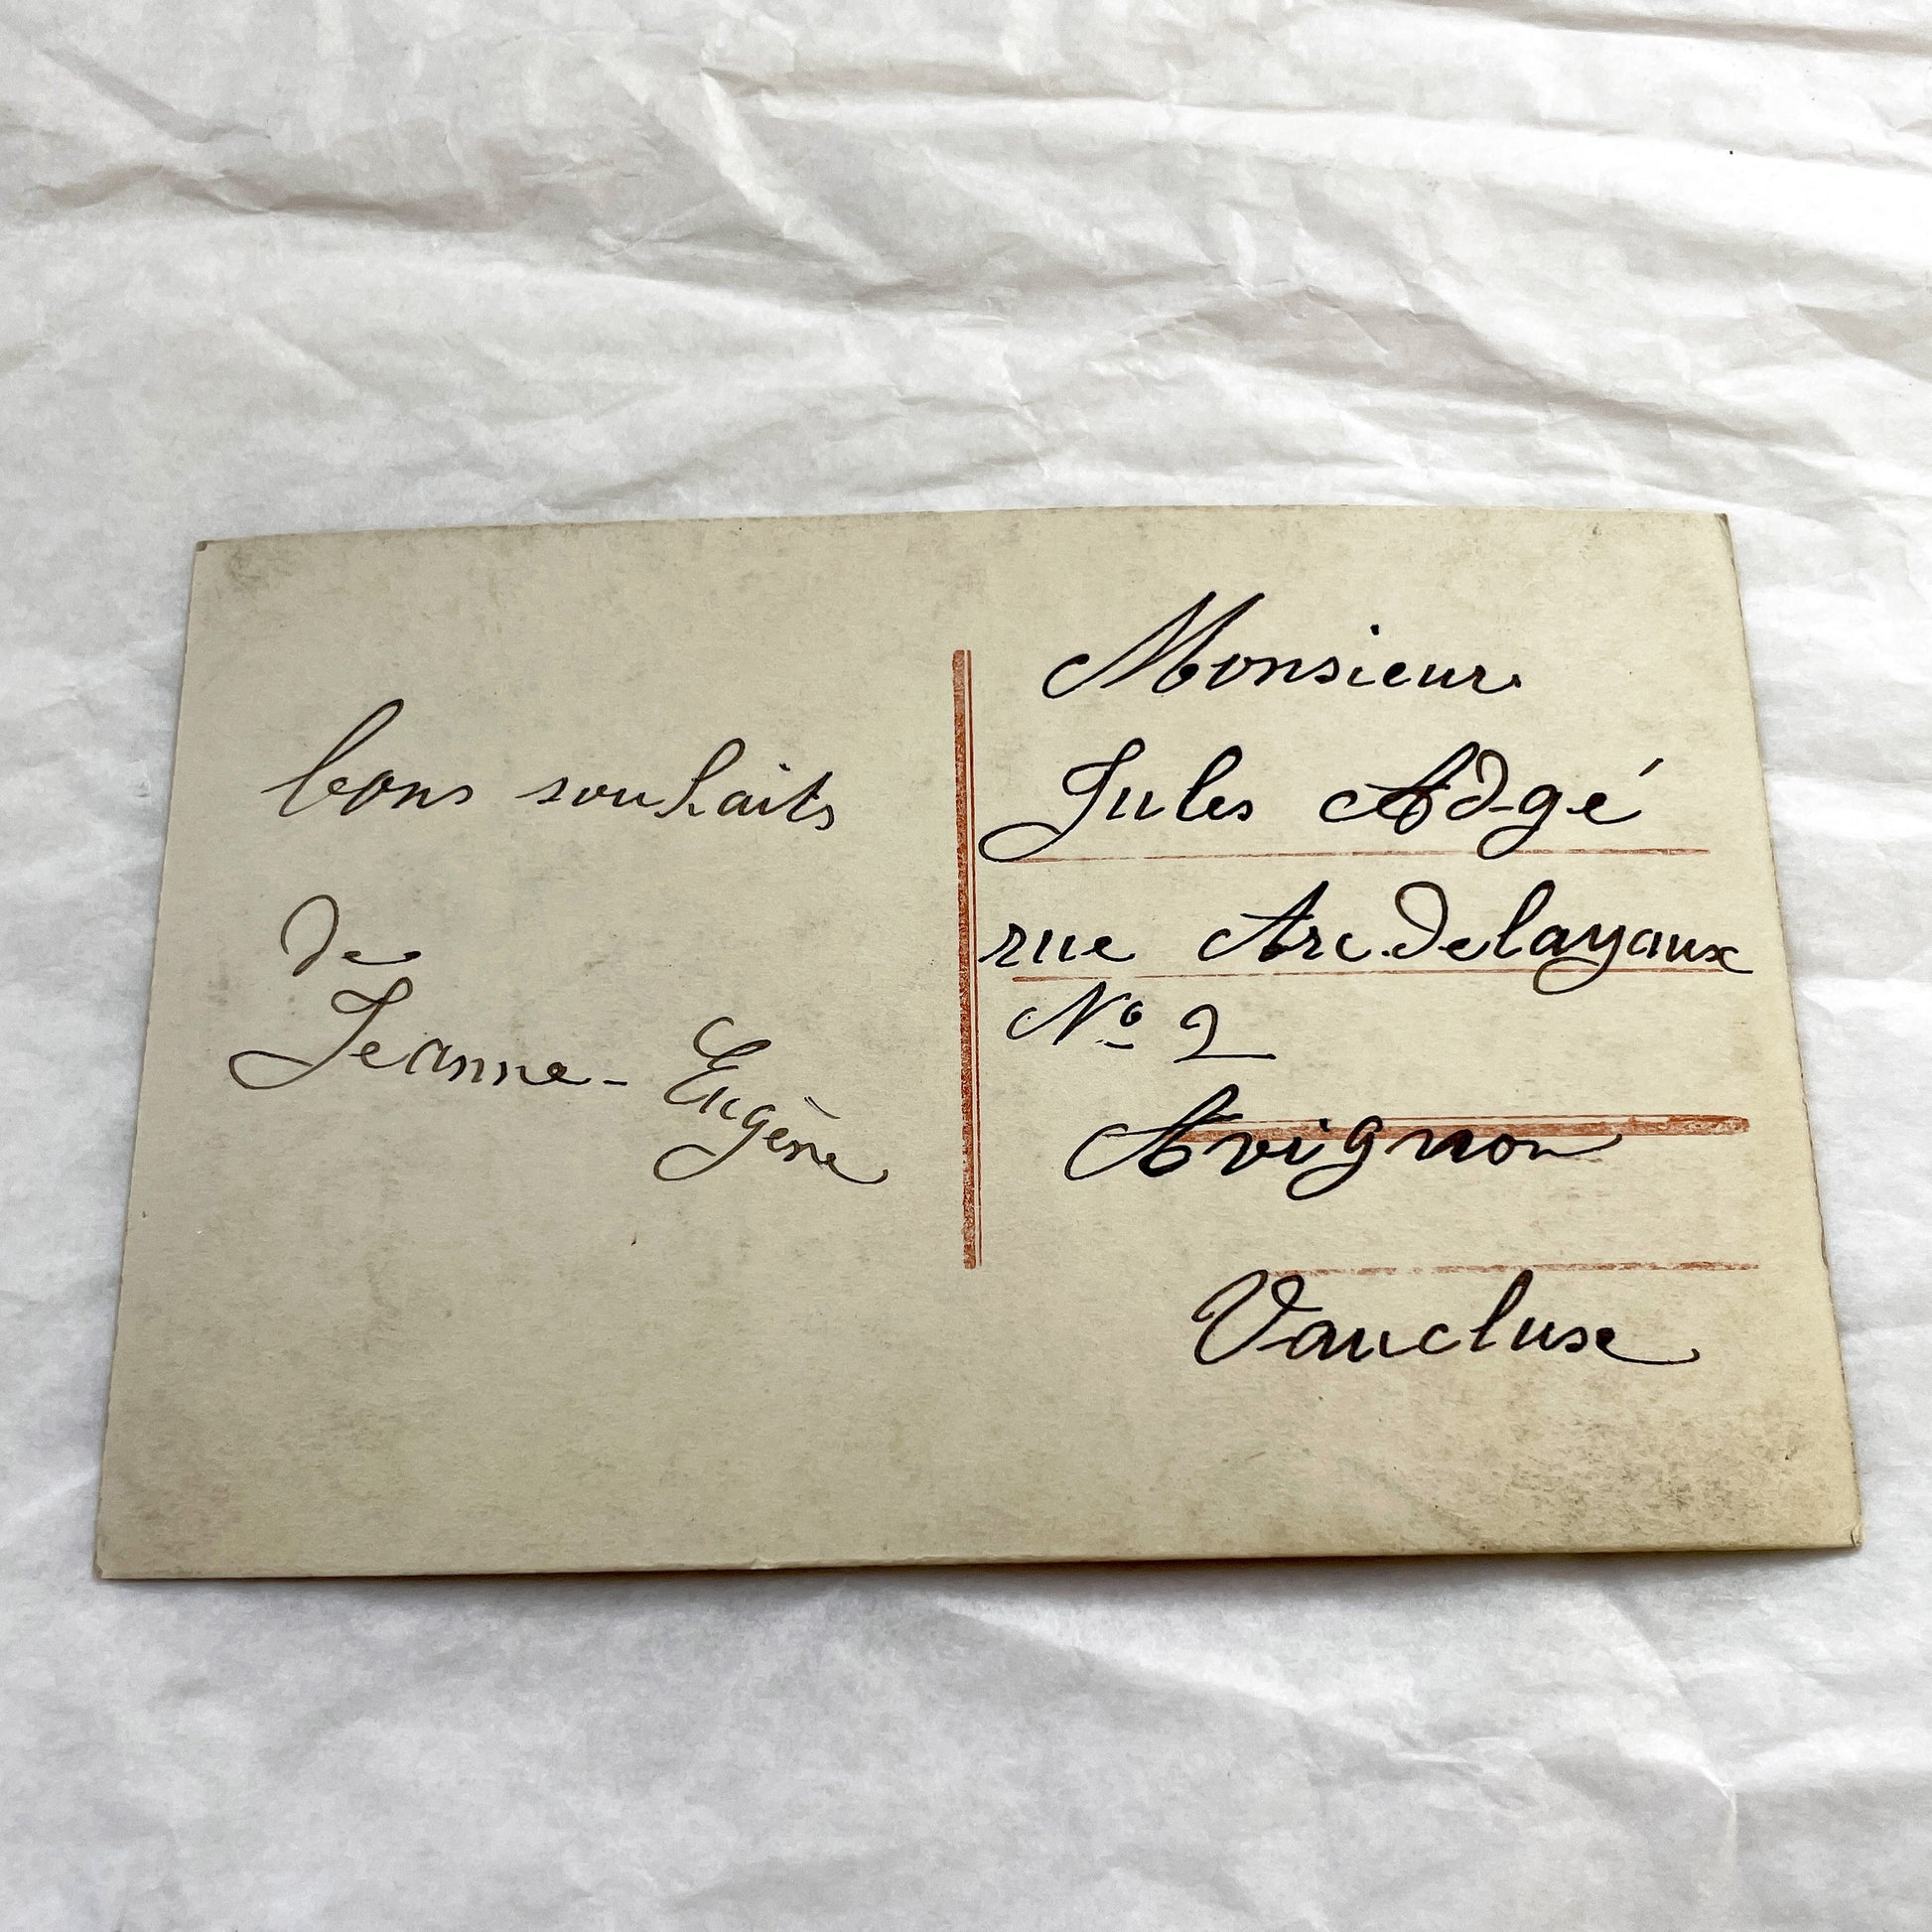 bons souhaits
de
Jeanne - Eugène
Monsieur
Jules Adgé
rue Arc.delayaux
Nº 2
Avignon
Vaucluse